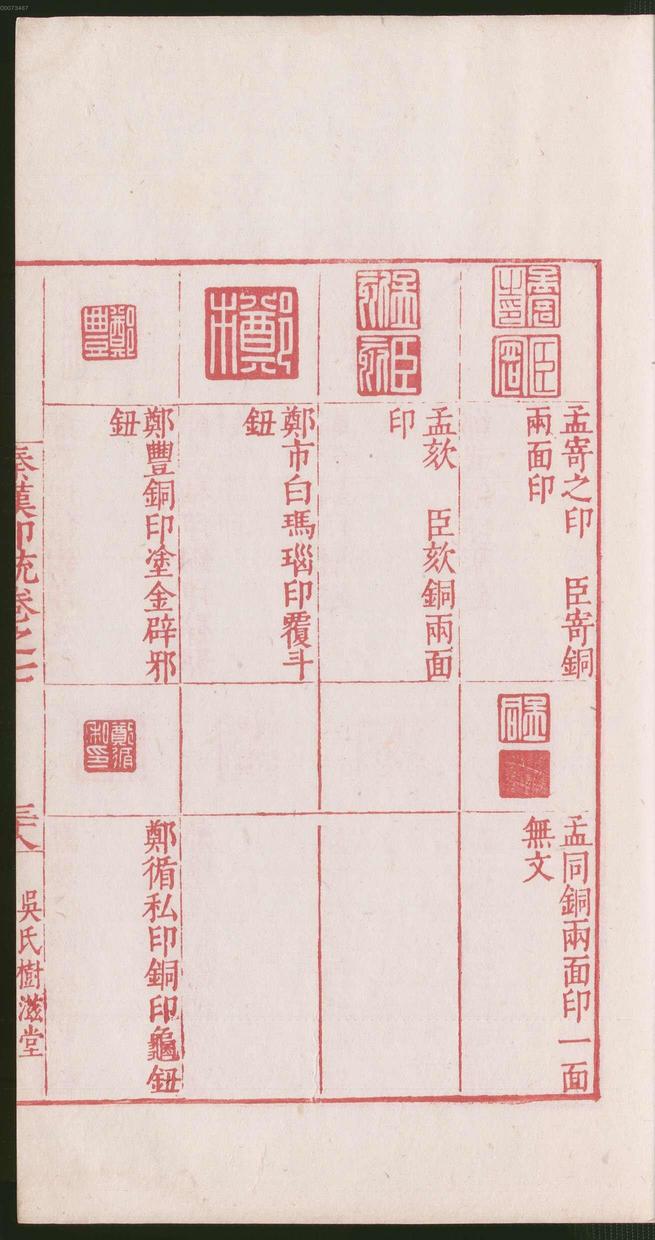 孟寄之印　臣寄銅
兩面印
孟同銅兩面印一面
無文
孟欬　臣欬銅兩面
印
鄭市白瑪瑙印覆斗
鈕
鄭豐銅印塗金辟邪
鈕
鄭循私印銅印龜鈕
秦漢印統卷之七
三八
吳氏樹滋堂
00073467